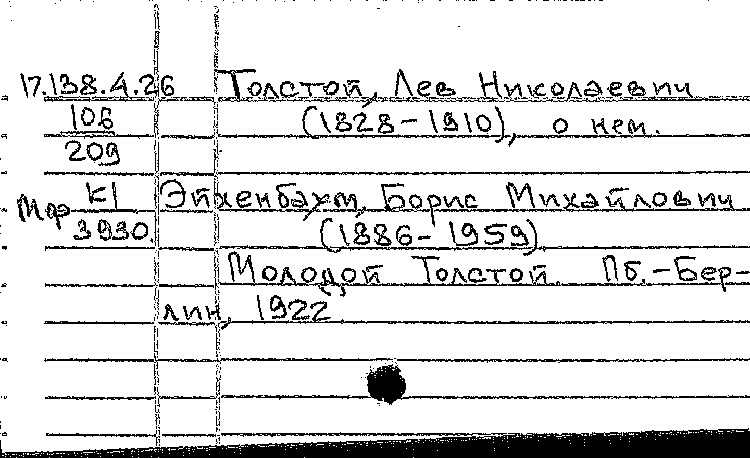 17.138.4.26 Толстой, Лев Николаевич
106 (1828-1910), о нем.
209
Мф К1 Эйхенбаум, Борис Михайлович
3930. (1886-1959)
Молодой Толстой. Пб.-Бер-
лин, 1922.